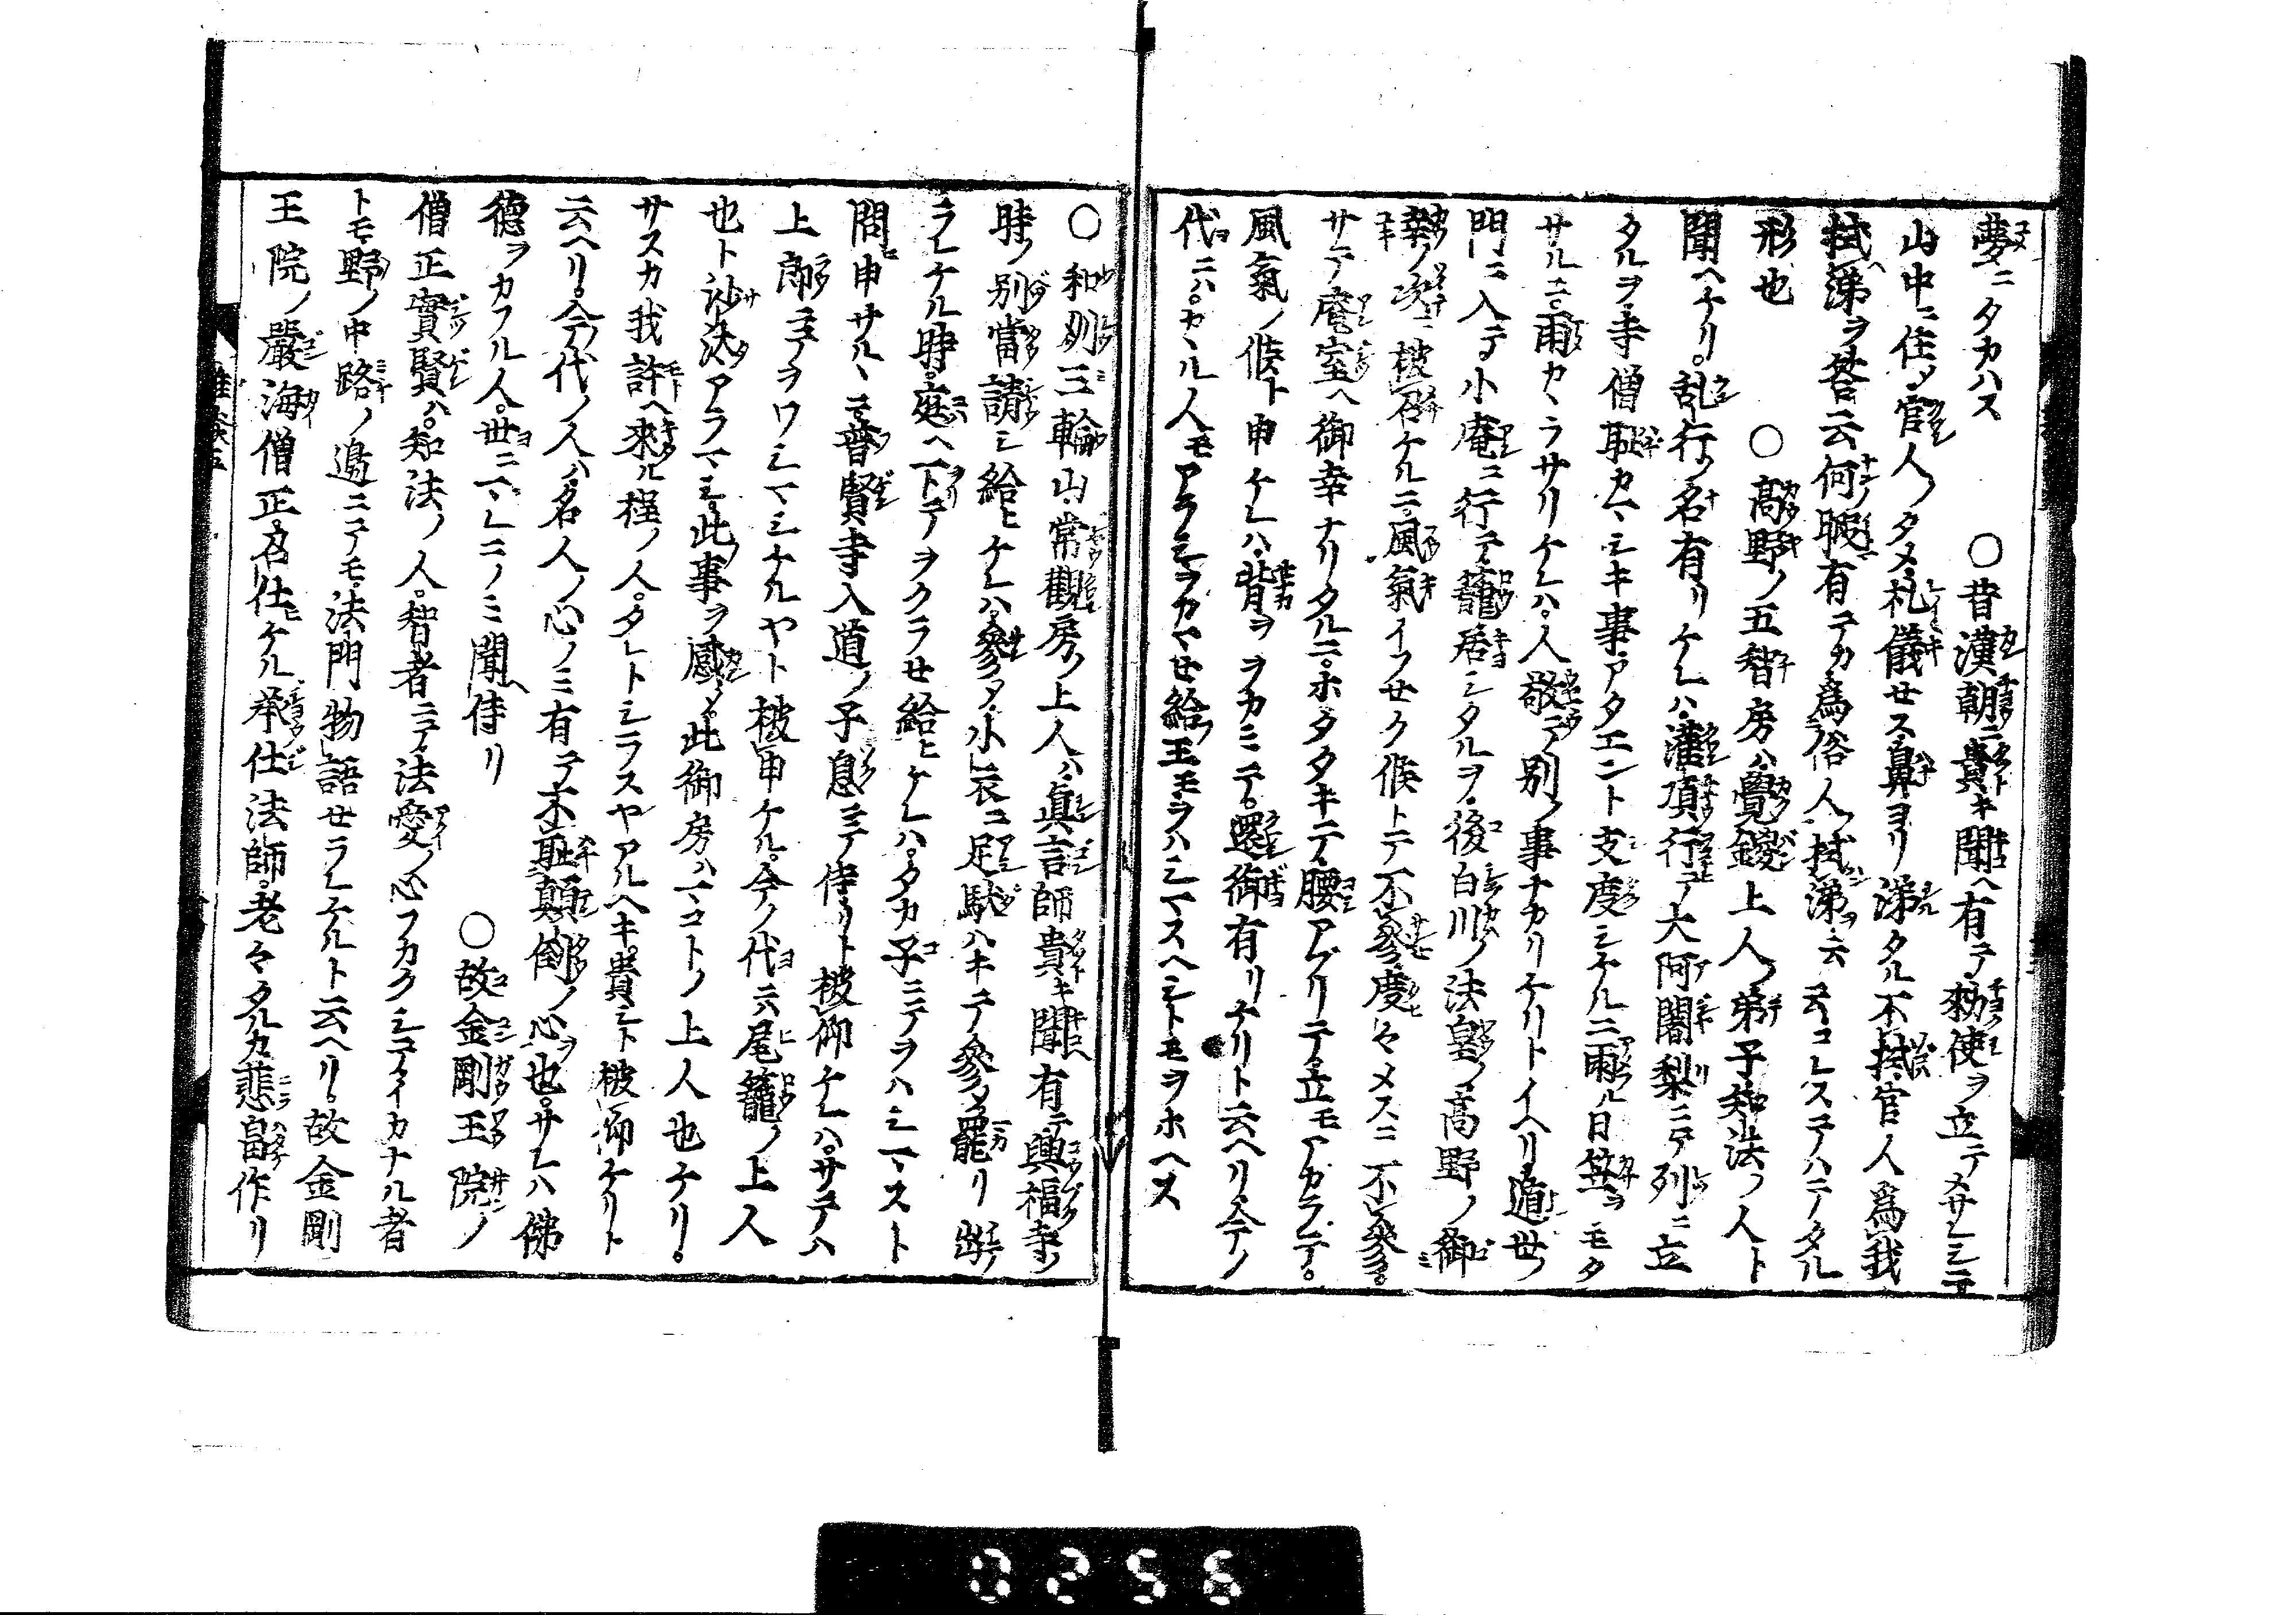 夢ニタカハス　○昔漢朝ニ貴キ聞ヘ有テ勅使ヲ立テメサレシニ
山中ニ住シ官人ノタメ礼儀セス鼻ヨリ涕タル不拭官人為我
拭涕ヲ答云何ノ暇有テカ為俗人ノ拭涕ヲ云云コレステハテタル
形也　○高野ノ五智房ハ覺鑁上人ノ弟子知法ノ人ト
聞ヘケリ。乱行ノ名有リケレハ灌頂行テ大阿闍梨ニテ列ニ立
タルヲ寺僧耻カマシキ事アタエント支度シケルニ雨フル日笠ヲモタ
サルニ雨カヽラサリケレハ。人敬テ別ノ事ナカリケリトイヘリ遁世ノ
門ニ入テ小庵ニ行テ籠居シタルヲ後白川ノ法皇ノ高野ノ御
幸ノ次ニ被召ケルニ風氣イフセク候トテ不參度々メスニ不參。
サテ庵室ヘ御幸ナリタルニ。ホタタキニテ腰アブリテ立モアカラテ。
風氣ノ候ト申ケレハ背ヲヲカミニテ。還御有リケリト云ヘリ今ノ
代ニハ。カヽル人モアラシヲカマセ給王モヲハシマスヘシトモヲホヘス
○和刕三輪山常觀房ノ上人ハ眞言師貴キ聞有テ興福寺ノ
時ノ別當請シ給ヒケレハ參タ小衣ニ足駄ハキニテ參ス罷リ出
ラレケル時。庭ヘ下テヲクラせ給ヒケレハ。タカ子ニテヲハシマスト
問申サルヽニ普賢寺入道ノ子息ニテ侍リト被仰ケレハ。サテハ
上﨟ニテヲワシマシナルヤト被申ケル。今ノ代ニハ尾籠ノ上人
也ト沙汰アラマシ。此事ヲ感メ。此御房ハマコトノ上人也ケリ。
サスカ我許ヘ來ル程ノ人。タレトシラスヤアルヘキ。貴シト被仰ケリト
云ヘリ。今ノ代ノ人ハ名人ノ心ノミ有テ不耻顛倒ノ心ヲ也。サレハ佛
德ヲカフル人。世ニマレニノミ聞ヘ侍リ　○故金剛王院ノ
僧正實賢ハ。知法ノ人。智者ニテ法愛ノ心フカクシテイカナル者
トモ野ノ中路ノ邊ニテモ。法門物語セラレケルト云ヘリ。故金剛
王院ノ嚴海僧正召仕ケル承仕法師。老々タルカ悲畠作リ
0256